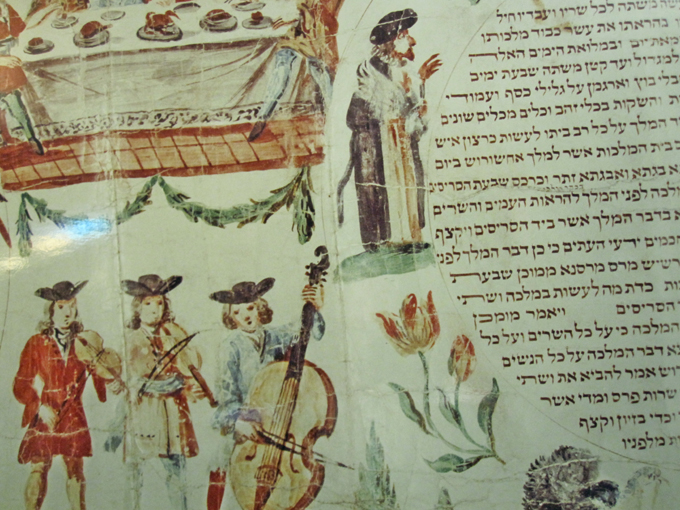 משתה לכל שריו ועבדיו חיל
בהראתו את עשר כבוד מלכותו
יום ובמלואת הימים האלה
למגדול ועד קטן משתה שבעת ימים
חבלי בוץ וארגמן על גלילי כסף ועמודי
והשקות בכלי זהב וכלים מכלים שונים
המלך על כל רב ביתו לעשות כרצון איש
בית המלכות אשר למלך אחשורוש ביום
בגתא ואבגתא זתר וכרכס שבעת הסריסים
לפני המלך להראות העמים והשרים
בדבר המלך אשר ביד הסריסים ויקצף
ידעי העתים כי כן דבר המלך לפני
מרס מרסנא ממוכן שבעת
כדת מה לעשות במלכה ושתי
הסריסים ויאמר מומכן
המלכה כי על כל השרים ועל כל
דבר המלכה על כל הנשים
אמר להביא את ושתי
שרות פרס ומדי אשר
וכדי בזיון וקצף
מלפניו